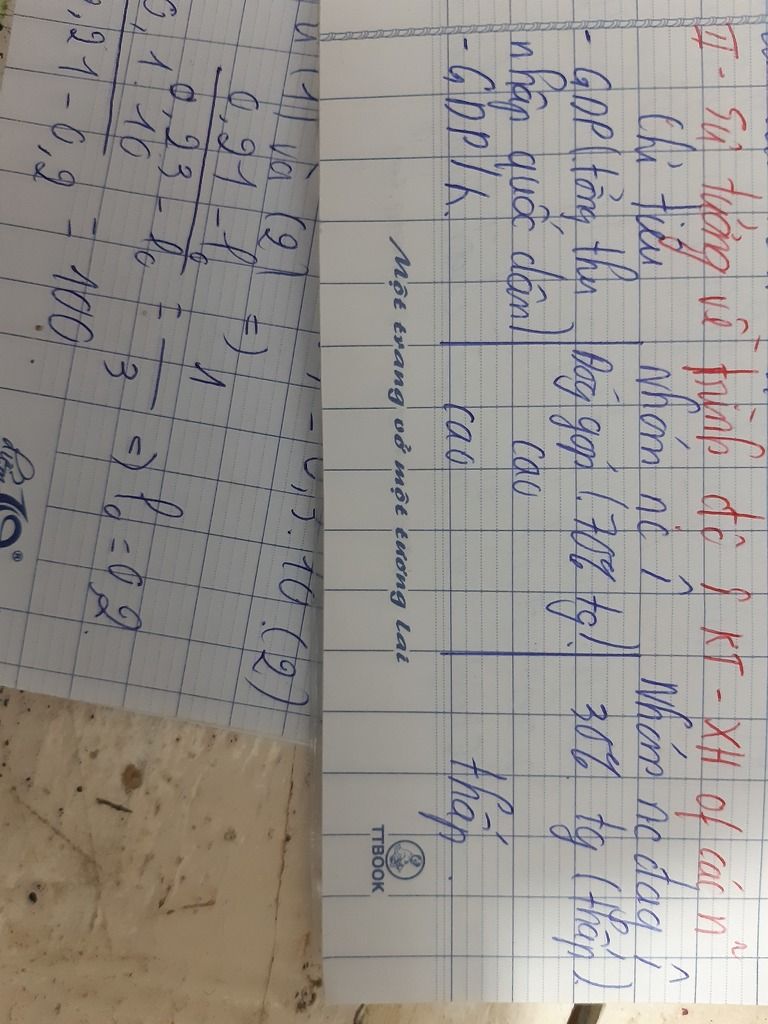 II - Sự tưởng về trình độ f KT - XH of các nc
Chỉ tiêu Nhóm nc f Nhóm nc đag f
- GDP (tổng thu Đóg góp (70% tg) 30% tg (thấp)
nhập quốc dân) cao
- GDP/ cao thấp
Một trang vở một tương lai
TTBOOK
(1) và (2) =)
0,3.10 (2)
0,21 - l0
0,23 - l0 = 1/3 =) l0 = 0,2
0,1.10
0,21 - 0,2 = 100